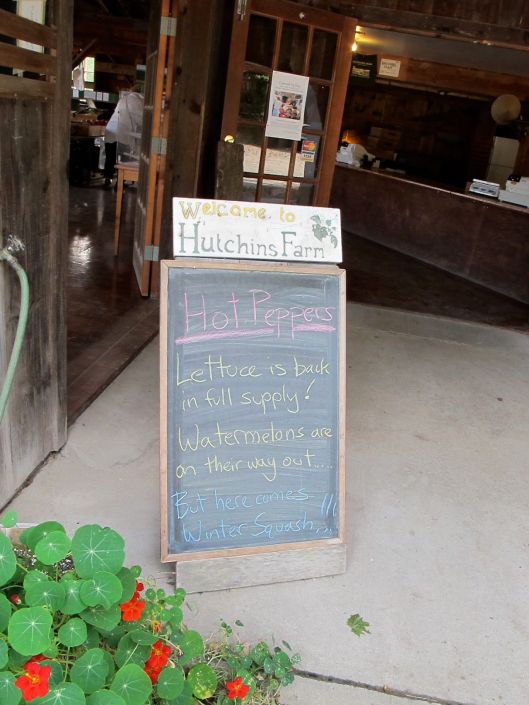 Welcome to
Hutchins Farm
Hot Peppers
Lettuce is back
in full supply!
Watermelons are
on their way out....
But here comes
Winter Squash,... !!!